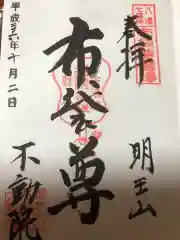 奉拝
明王山
布袋尊
不動院
平成二六年十月二日